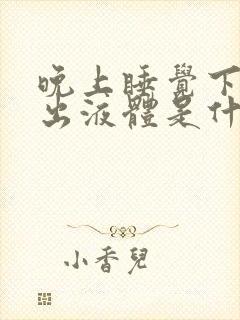 晚上睡覺下
出液體是什
小香兒